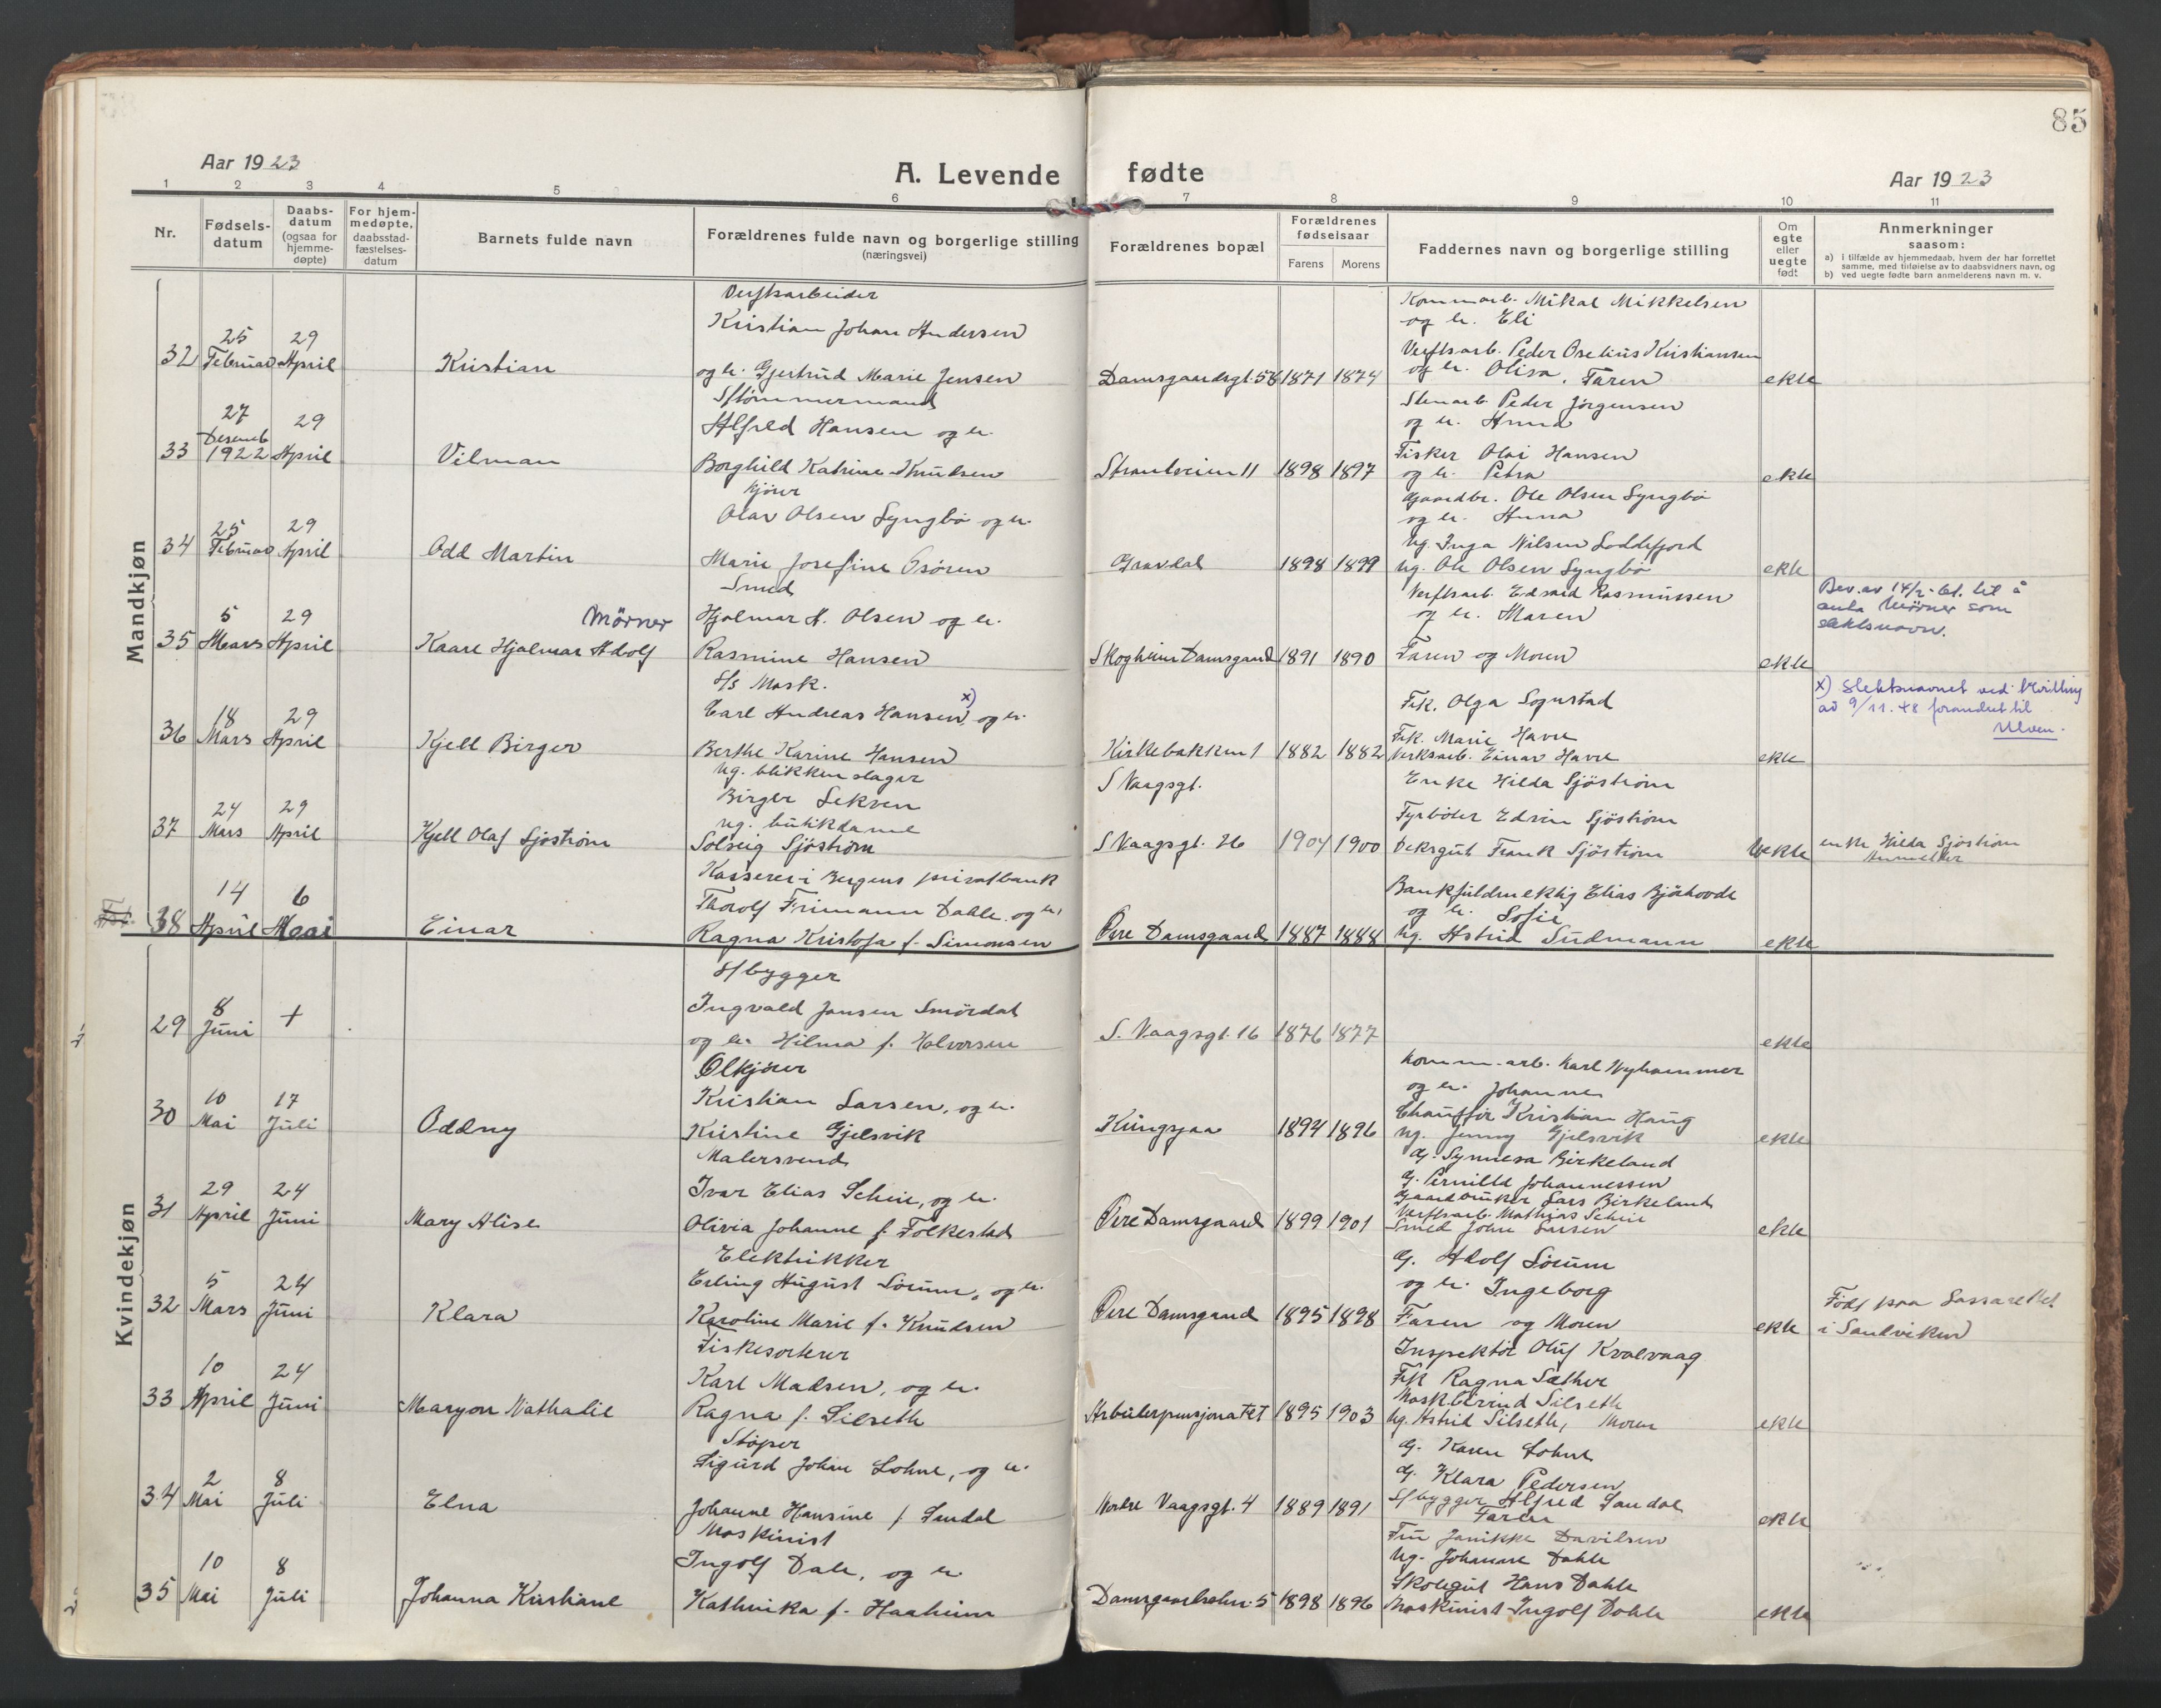 85
Aar 1923
A. Levende fødte
Aar 1923
1 2 3 4 5 6 7 8 9 10 11
Nr.
Fødsels-
datum
Daabs-
datum
(ogsaa for
hjemme-
døpte)
For hjem-
medøpte,
daabsstad-
fæstelses-
datum
Barnets fulde navn
Forældrenes fulde navn og borgerlige stilling
(næringsvei)
Forældrenes bopæl
Forældrenes
fødselsaar
Farens Morens
Faddernes navn og borgerlige stilling
Om
egte
eller
uegte
født
Anmerkninger
saasom:
a) i tilfælde av hjemmedaab, hvem der har forrettet
samme, med tilføielse av to daabsvidners navn, og
b) ved uegte fødte barn anmelderens navn m. v.
Mandkjøn
32
25
Februar
29
April
Kristian
Verftsarbeider
Kristian Johan Andersen
og h. Gjertrud Marie Jensen
Damsgaardsgt. 58
1871 1874
Kommarb. Mikal Mikkelsen
og h. Eli
Verftsarb. Peder Oselius Kristiansen
og h. Olisa, Faren
ekte
33
27
Desemb
1922
29
April
Vilman
S/tømmermand
Alfred Hansen og h.
Borghild Katrine Knudsen
Strandveien 11
1898 1897
Stenarb. Peder Jörgensen
og h. Anna
Fisker Olai Hansen
og h. Petra
ekte
34
25
Februar
29
April
Odd Martin
Kjörer
Olav Olsen Lyngbö og h.
Marie Josefine Osören
Gravdal
1898 1899
Gaardbr. Ole Olsen Lyngbö
og h. Anna
Ug. Inga Nilsen Loddefjord
Ug. Ole Olsen Lyngbö
ekte
35
5
Mars
29
April
Mörner
Kaare Hjalmar Adolf
Smed
Hjalmar A. Olsen og h.
Rasmine Hansen
Skogheim Damsgaard
1891 1890
Verftsarb. Edvard Rasmussen
og h. Maren
Faren og Moren
ekte
Bev. av 14/2- 61. til å
anta Mörner som
slektsnavn.
36
18
Mars
29
April
Kjell Birger
S/s Mask.
Carl Andreas Hansen x) og h.
Berthe Karine Hansen
Kirkebakken 1
1882 1882
Frk. Olga Sognstad
Frk. Marie Havre
Verksarb. Einar Havre
ekte
x) Slektsnavnet ved bevilling
av 9/11. 48 forandret til
Ulven.
37
24
Mars
29
April
Kjell Olaf Sjöström
Ug. blikkenslager
Birger Sekven
Ug. butikdame
Solveig Sjöström
S Vaagsgt.
S Vaagsgt. 26
1904 1900
Enke Hilda Sjöström
Fyrböter Edvin Sjöström
Deksgut Frank Sjöström
Uekte
enke Hilda Sjöström
Anmelder
38
14
April
6
Mai
Einar
Kasserer i Bergens privatbank
Thorolf Frimann Dahle og h.
Ragna Kristofa f. Simonsen
Övre Damsgaard
1887 1888
Bankfuldmektig Elias Bjöhovde
og h. Sofie
Ug. Astrid Sudmann
ekte
Kvindekjøn
29
8
Juni
+
S/bygger
Ingvald Jansen Smördal
og h. Hilma f. Halvorsen
S. Vaagsgt. 16
1876 1877
ekte
30
10
Mai
17
Juli
Oddny
Ölkjörer
Kristian Larsen, og h.
Kristine Gjelsvik
Kringsjaa
1894 1896
Komm.-arb. Karl Nyhammer
og h. Johanne
Chaufför Kristian Haug
Ug. Jenny Gjelsvik
ekte
31
29
April
24
Juni
Mary Alise
Malersvend
Ivar Elias Scheie, og h.
Olivia Johanne f. Folkestad
Övre Damsgaard
1899 1901
G. Synneva Birkeland
G. Pernille Johannessen
Gaardbruker Lars Birkeland
Verftsarb. Mathias Scheie
Smed John Larsen
ekte
32
5
Mars
24
Juni
Klara
Elektrikker
Erling August Sörum, og h.
Karoline Marie f. Knudsen
Övre Damsgaard
1895 1898
G. Adolf Sörum
og h. Ingeborg
Faren og Moren
ekte
Född paa Lassarettet
i Sandviken
33
10
April
24
Juni
Maryon Nathalie
Fiskesorterer
Karl Madsen, og h.
Ragna f. Silseth
Arbeiderpensjonatet
1895 1903
Inspektör Oluf Kvalvaag
Frk Ragna Sæther
Mask. Eivind Silseth
Ug. Astrid Silseth, Moren
ekte
34
2
Mai
8
Juli
Elna
Stöper
Sigurd Johan Lohne, og h.
Johanne Hansine f. Sandal
Nordre Vaagsgt. 4
1889 1891
G. Karen Lohne
G. Klara Pedersen
S/bygger Alfred Sandal
Faren
ekte
35
10
Mai
8
Juli
Johanna Kristiane
Maskinist
Ingolf Dale, og h.
Kathinka f. Haaheim
Damsgaardsalm. 5
1898 1896
Fru Janikke Davidsen
Ug. Johanne Dahle
Skolegut Hans Dahle
Maskinist Ingolf Dahle
ekte